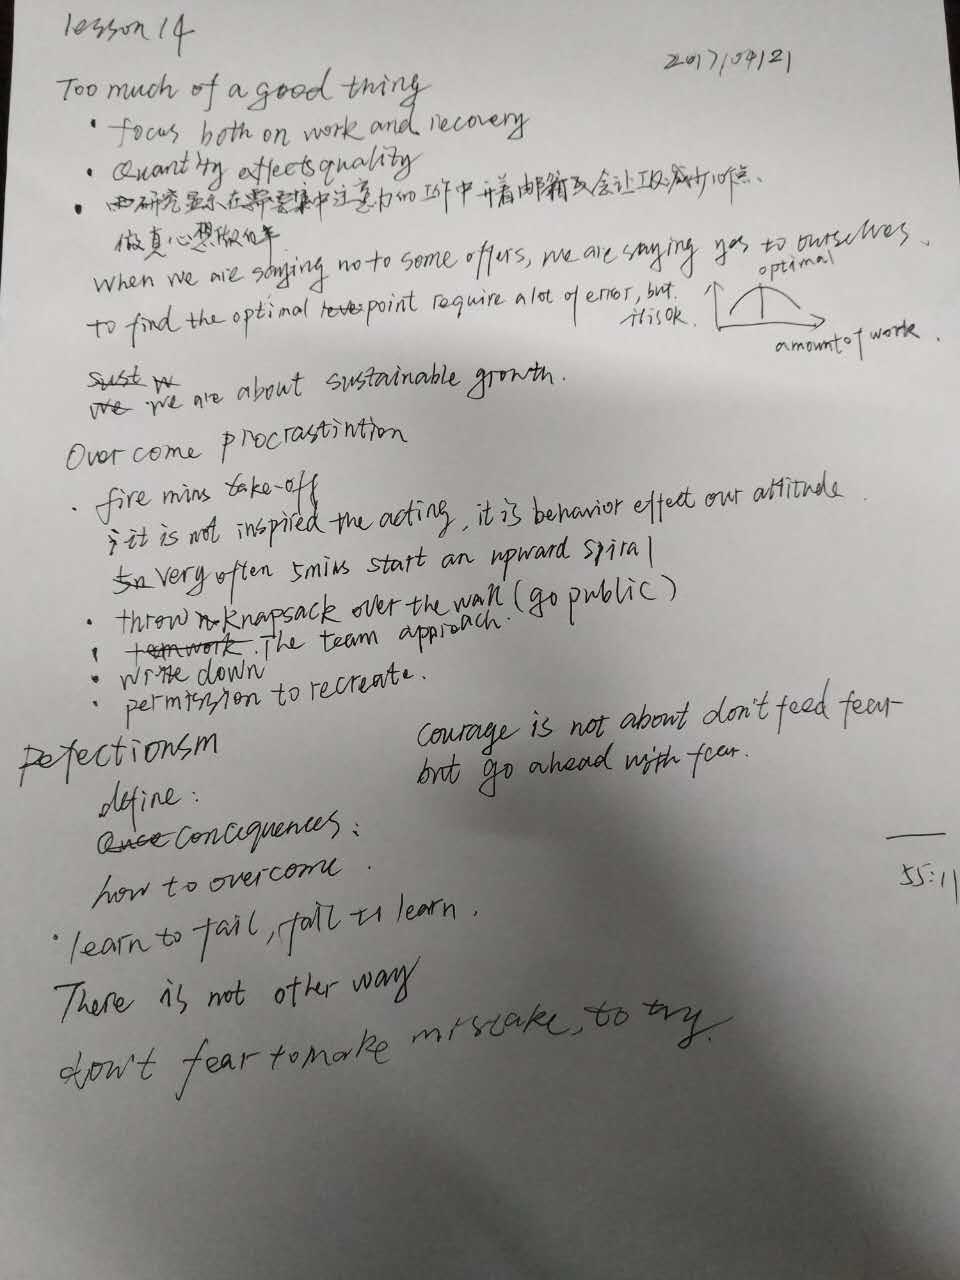 lesson 14
2017/04/21
Too much of a good thing
• focus both on work and recovery
• Quantity effects quality
• 研究显示在需要集中注意力的工作中开着邮箱会让IQ减少10点、
做真心想做的
when we are saying no to some offers, we are saying yes to ourselves.
to find the optimal point require a lot of error, but
it is ok.
optimal
amount of work.
we are about sustainable growth.
Overcome procrastintion
• five mins take-off
it is not inspired the acting, it is behavior effect our attitude.
very often 5mins start an upward spiral
• throw knapsack over the wall (go public)
• The team approach.
• write down
• permission to recreate.
Pefectionsm
courage is not about don't feed fear
but go ahead with fear.
define:
concequences:
how to overcome.
55:11
• learn to fail, fail to learn.
There is not other way
don't fear to make mistake, to try.